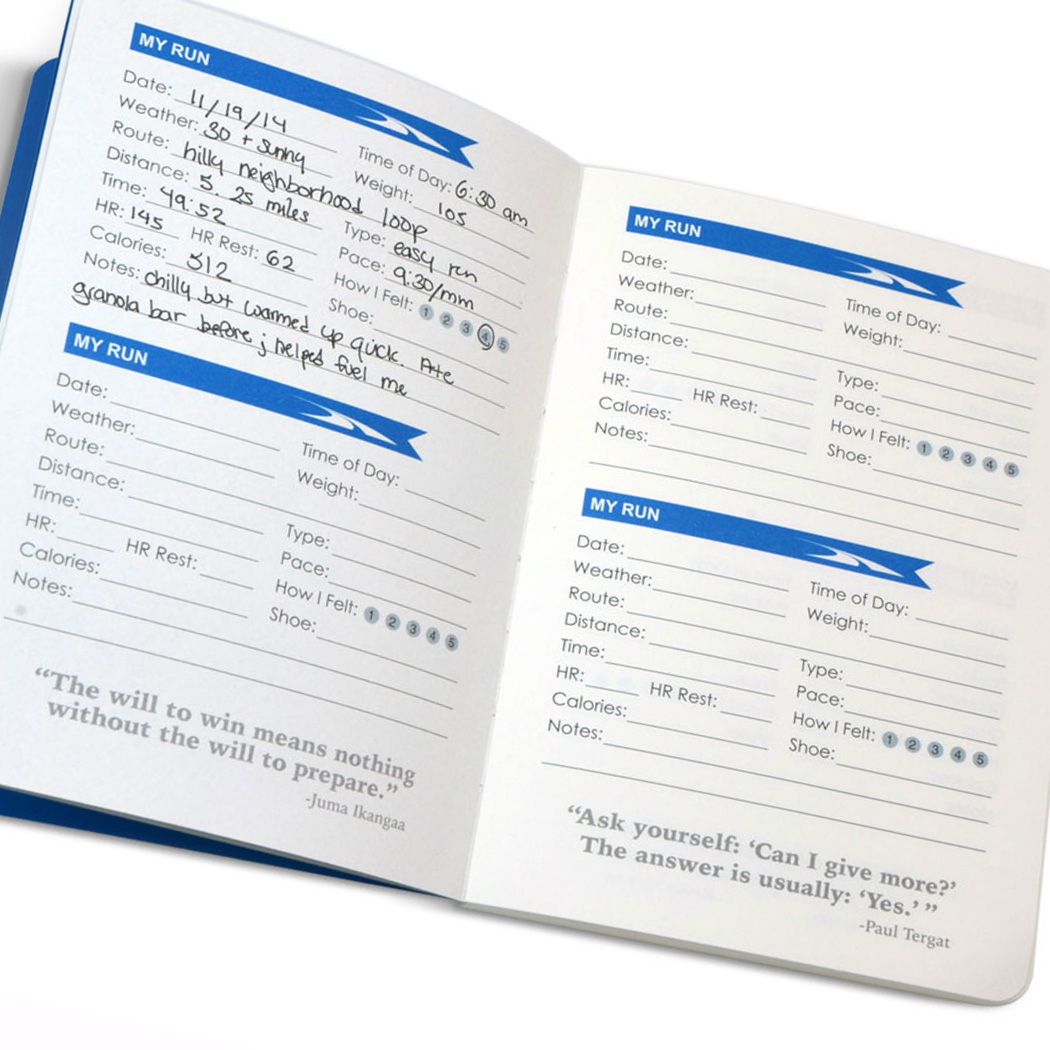 MY RUN
Date: 11/19/14
Weather: 30 + sunny Time of Day: 6:30 am
Route: hilly neighborhood loop Weight: 105
Distance: 5.25 miles
Time: 49:52 Type: easy run
HR: 145 HR Rest: 62 Pace: 9:30/mm
Calories: 512 How I Felt: 1 2 3 4 5
Notes: chilly but warmed up quick. Ate Shoe:
granola bar before; helped fuel me
MY RUN
Date:
Weather: Time of Day:
Route: Weight:
Distance:
Time: Type:
HR: HR Rest: Pace:
Calories: How I Felt: 1 2 3 4 5
Notes: Shoe:
“The will to win means nothing
without the will to prepare.”
-Juma Ikangaa
MY RUN
Date:
Weather: Time of Day:
Route: Weight:
Distance:
Time: Type:
HR: HR Rest: Pace:
Calories: How I Felt: 1 2 3 4 5
Notes: Shoe:
MY RUN
Date:
Weather: Time of Day:
Route: Weight:
Distance:
Time: Type:
HR: HR Rest: Pace:
Calories: How I Felt: 1 2 3 4 5
Notes: Shoe:
“Ask yourself: ‘Can I give more?’
The answer is usually: ‘Yes.’ ”
-Paul Tergat